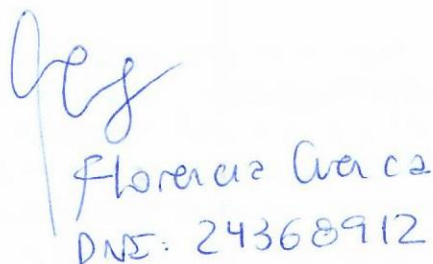 Florencia Cuenca
DNI: 24368912